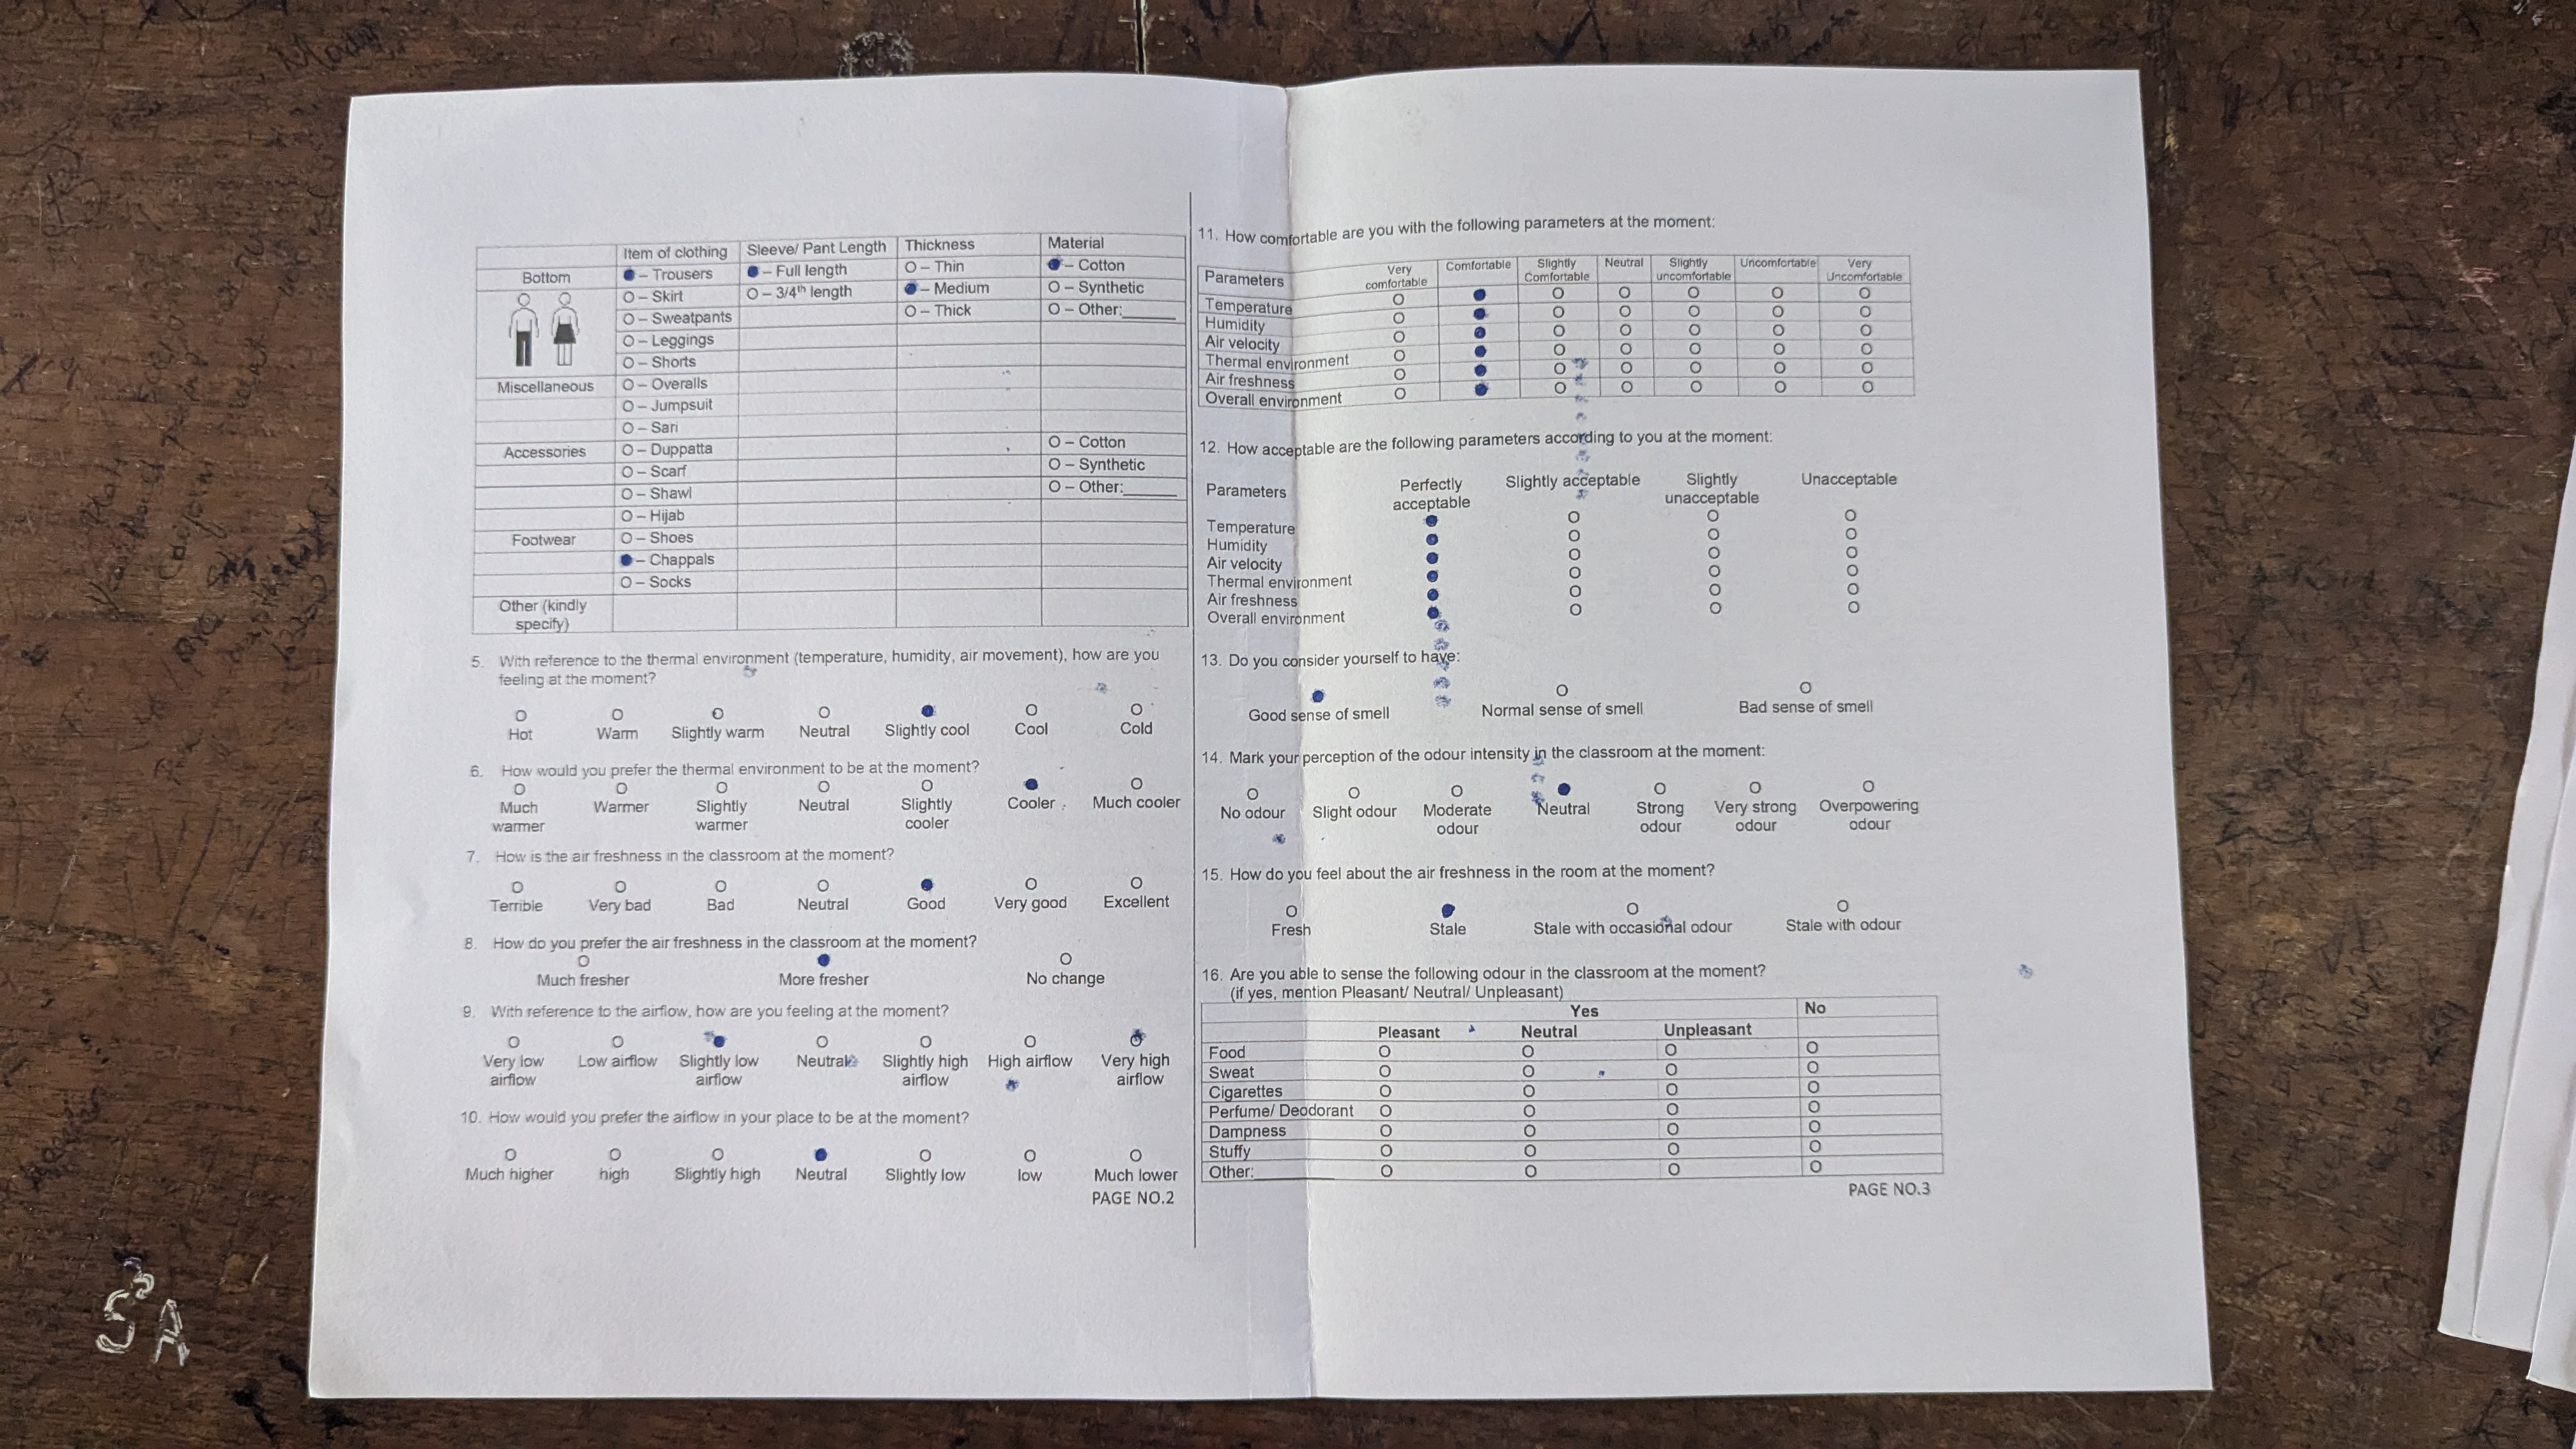 Item of clothing Sleeve/ Pant Length Thickness Material
Bottom ● – Trousers ● – Full length O – Thin ● – Cotton
O – Skirt O – 3/4th length ● – Medium O – Synthetic
O – Sweatpants O – Thick O – Other:______
O – Leggings
O – Shorts
Miscellaneous O – Overalls
O – Jumpsuit
O – Sari
Accessories O – Duppatta O – Cotton
O – Scarf O – Synthetic
O – Shawl O – Other:______
O – Hijab
Footwear O – Shoes
● – Chappals
O – Socks
Other (kindly
specify)
5. With reference to the thermal environment (temperature, humidity, air movement), how are you
feeling at the moment?
O O O O ● O O
Hot Warm Slightly warm Neutral Slightly cool Cool Cold
6. How would you prefer the thermal environment to be at the moment?
O O O O O ● O
Much Warmer Slightly Neutral Slightly Cooler Much cooler
warmer warmer cooler
7. How is the air freshness in the classroom at the moment?
O O O O ● O O
Terrible Very bad Bad Neutral Good Very good Excellent
8. How do you prefer the air freshness in the classroom at the moment?
O ● O
Much fresher More fresher No change
9. With reference to the airflow, how are you feeling at the moment?
O O ● O O O O
Very low Low airflow Slightly low Neutral Slightly high High airflow Very high
airflow airflow airflow airflow
10. How would you prefer the airflow in your place to be at the moment?
O O O ● O O O
Much higher high Slightly high Neutral Slightly low low Much lower
PAGE NO.2
11. How comfortable are you with the following parameters at the moment:
Parameters Very Comfortable Slightly Neutral Slightly Uncomfortable Very
comfortable Comfortable uncomfortable Uncomfortable
Temperature O ● O O O O O
Humidity O ● O O O O O
Air velocity O ● O O O O O
Thermal environment O ● O O O O O
Air freshness O ● O O O O O
Overall environment O ● O O O O O
12. How acceptable are the following parameters according to you at the moment:
Parameters Perfectly Slightly acceptable Slightly Unacceptable
acceptable unacceptable
Temperature ● O O O
Humidity ● O O O
Air velocity ● O O O
Thermal environment ● O O O
Air freshness ● O O O
Overall environment ● O O O
13. Do you consider yourself to have:
● O O
Good sense of smell Normal sense of smell Bad sense of smell
14. Mark your perception of the odour intensity in the classroom at the moment:
O O O ● O O O
No odour Slight odour Moderate Neutral Strong Very strong Overpowering
odour odour odour odour
15. How do you feel about the air freshness in the room at the moment?
O ● O O
Fresh Stale Stale with occasional odour Stale with odour
16. Are you able to sense the following odour in the classroom at the moment?
(if yes, mention Pleasant/ Neutral/ Unpleasant)
Yes No
Pleasant Neutral Unpleasant
Food O O O O
Sweat O O O O
Cigarettes O O O O
Perfume/ Deodorant O O O O
Dampness O O O O
Stuffy O O O O
Other:__________ O O O O
PAGE NO.3